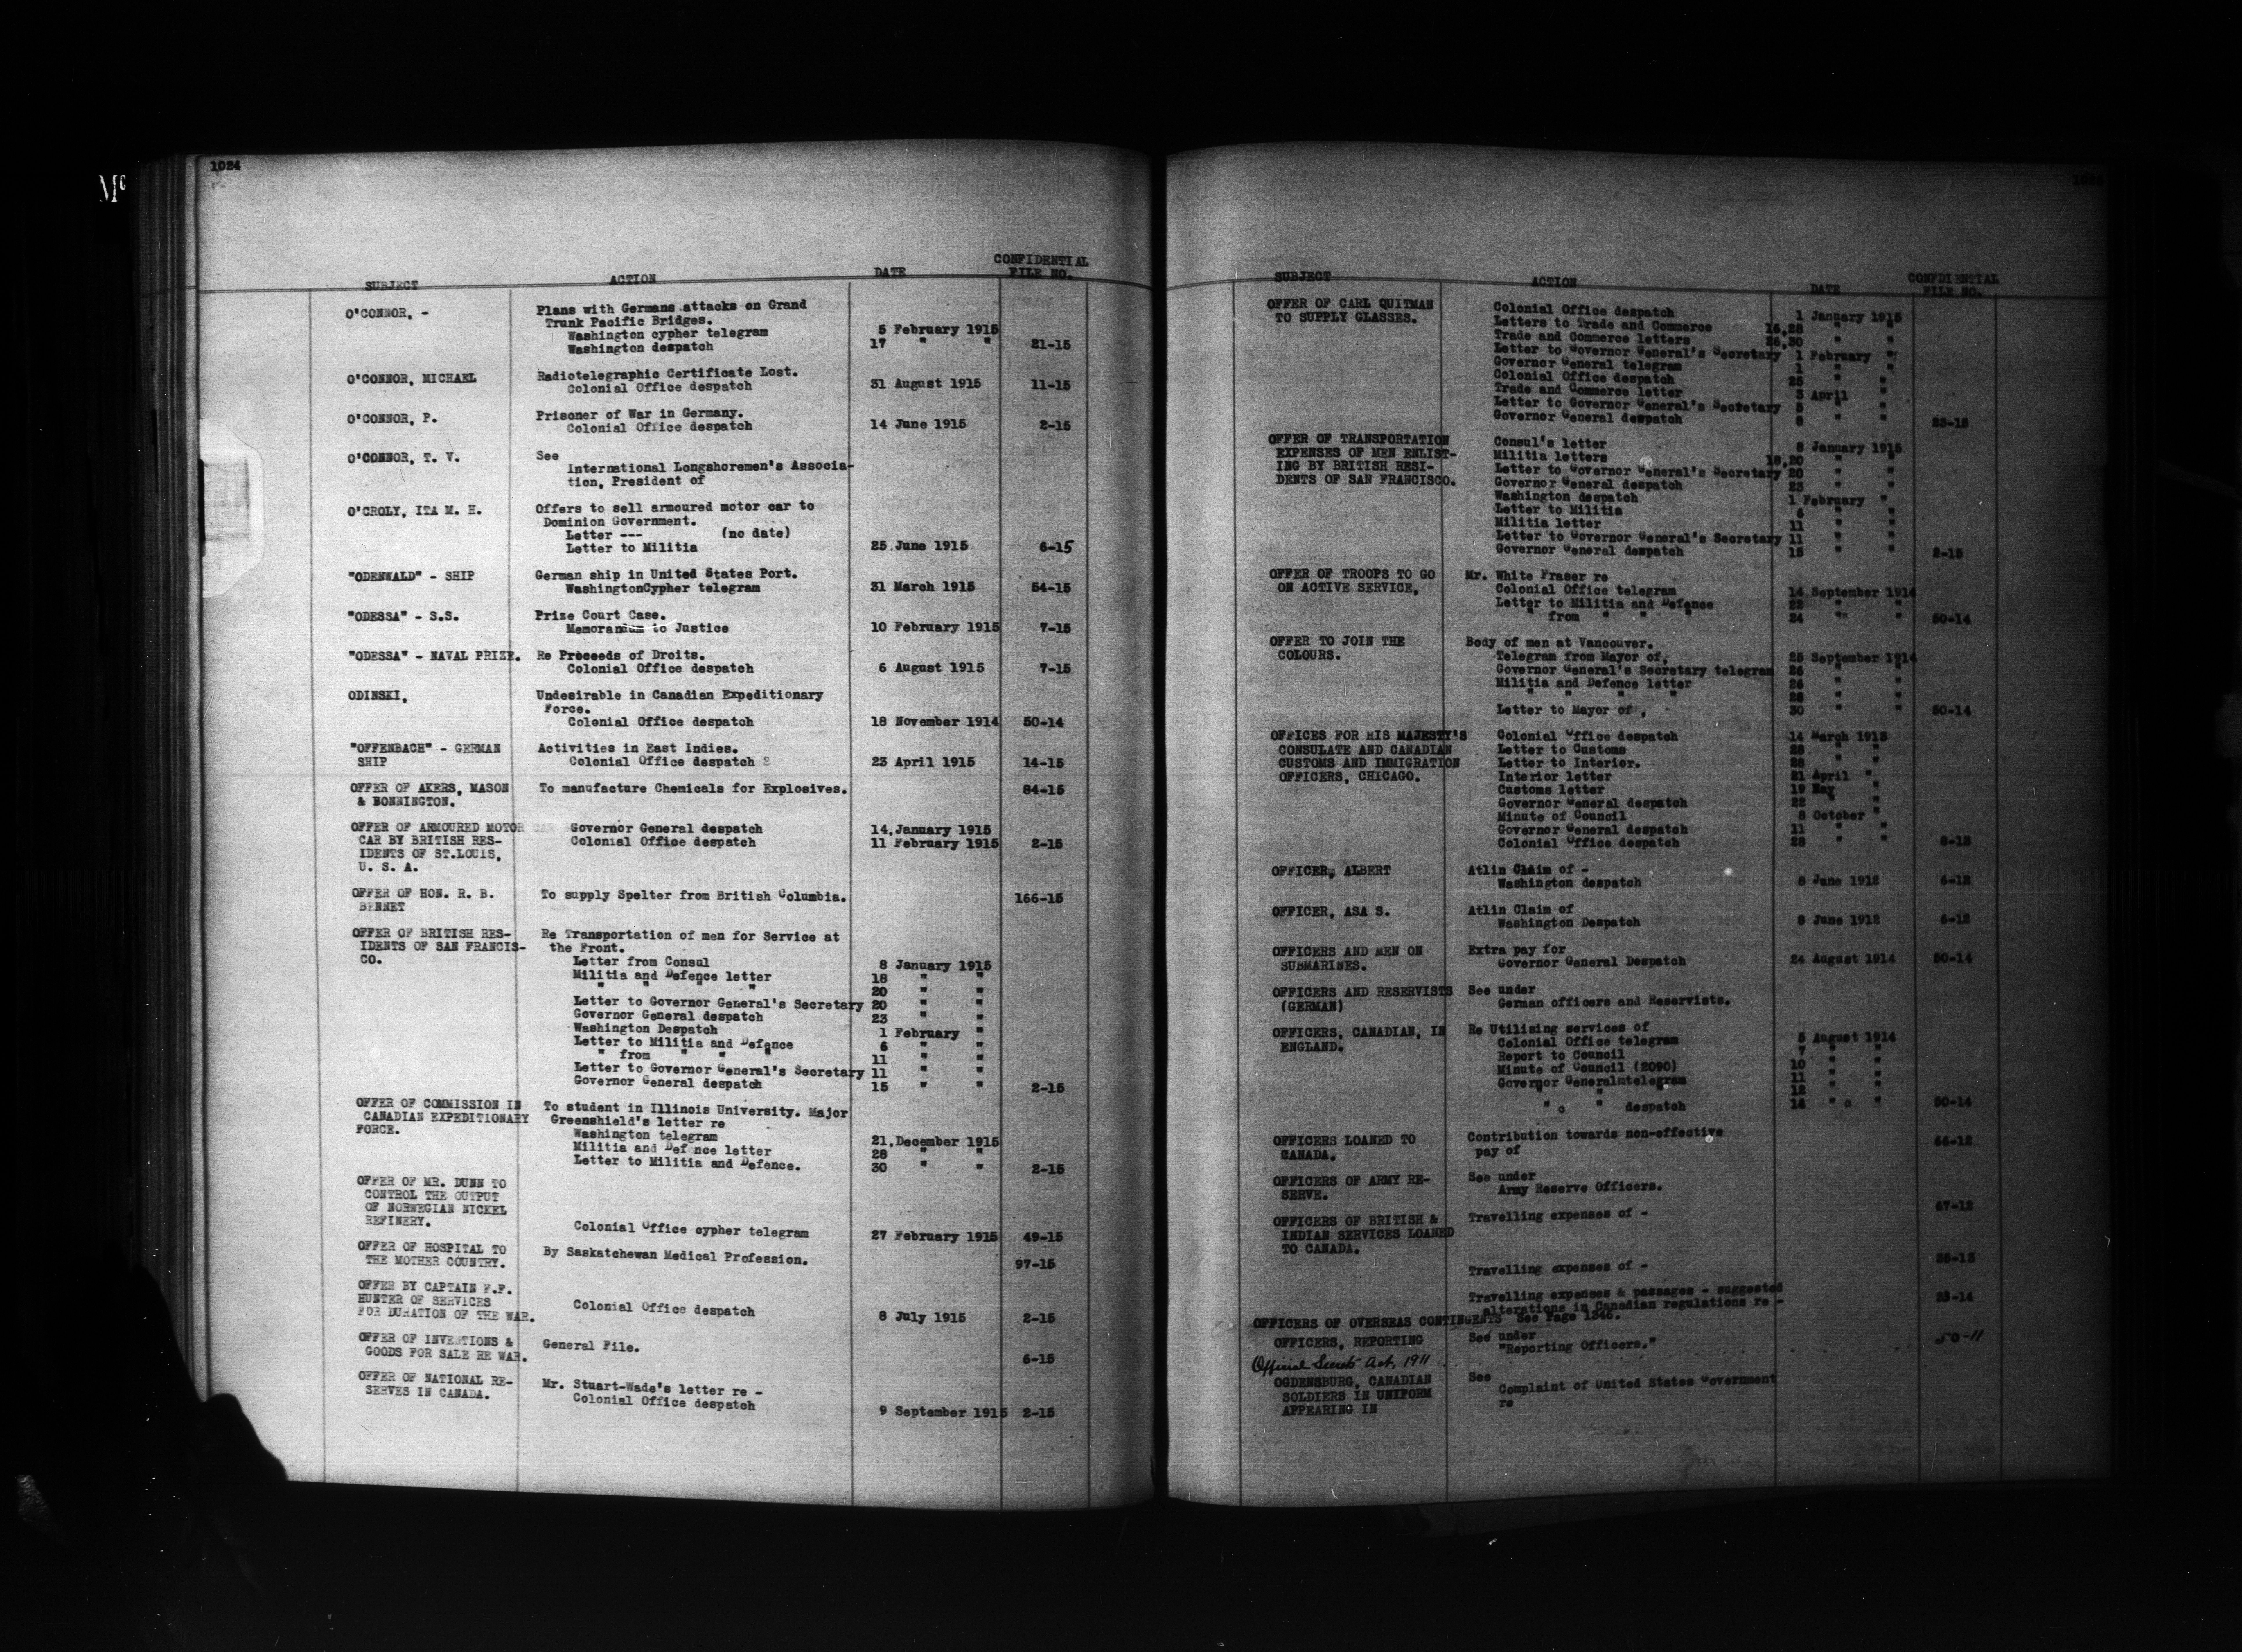 1024
Mc
CONFIDENTIAL
SUBJECT ACTION DATE FILE NO.
O'CONNOR, - Plans with Germans attacks on Grand
Trunk Pacific Bridges.
Washington cypher telegram 5 February 1915
Washington despatch 17 " " 21-15
O'CONNOR, MICHAEL Radiotelegraphic Certificate Lost.
Colonial Office despatch 31 August 1915 11-15
O'CONNOR, P. Prisoner of War in Germany.
Colonial Office despatch 14 June 1915 2-15
O'CONNOR, T. V. See
International Longshoremen's Associa-
tion, President of
O'CROLY, ITA M. H. Offers to sell armoured motor car to
Dominion Government.
Letter --- (no date)
Letter to Militia 25 June 1915 6-15
"ODENWALD" - SHIP German ship in United States Port.
WashingtonCypher telegram 31 March 1915 54-15
"ODESSA" - S.S. Prize Court Case.
Memorandum to Justice 10 February 1915 7-15
"ODESSA" - NAVAL PRIZE. Re Proceeds of Droits.
Colonial Office despatch 6 August 1915 7-15
ODINSKI, Undesirable in Canadian Expeditionary
Force.
Colonial Office despatch 18 November 1914 50-14
"OFFENBACH" - GERMAN Activities in East Indies.
SHIP Colonial Office despatch 23 April 1915 14-15
OFFER OF AKERS, MASON To manufacture Chemicals for Explosives. 84-15
& BONNINGTON.
OFFER OF ARMOURED MOTOR Governor General despatch 14 January 1915
CAR BY BRITISH RES- Colonial Office despatch 11 February 1915 2-15
IDENTS OF ST.LOUIS,
U. S. A.
OFFER OF HON. R. B. To supply Spelter from British Columbia. 166-15
BENNET
OFFER OF BRITISH RES- Re Transportation of men for Service at
IDENTS OF SAN FRANCIS- the Front.
CO. Letter from Consul 8 January 1915
Militia and Defence letter 18 " "
" " " " 20 " "
Letter to Governor General's Secretary 20 " "
Governor General despatch 23 " "
Washington Despatch 1 February "
Letter to Militia and Defence 6 " "
" from " " " 11 " "
Letter to Governor General's Secretary 11 " "
Governor General despatch 15 " " 2-15
OFFER OF COMMISSION IN To student in Illinois University. Major
CANADIAN EXPEDITIONARY Greenshield's letter re
FORCE. Washington telegram 21 December 1915
Militia and Def nce letter 28 " "
Letter to Militia and Defence. 30 " " 2-15
OFFER OF MR. DUNN TO
CONTROL THE OUTPUT
OF NORWEGIAN NICKEL
REFINERY. Colonial Office cypher telegram 27 February 1915 49-15
OFFER OF HOSPITAL TO By Saskatchewan Medical Profession.
THE MOTHER COUNTRY. 97-15
OFFER BY CAPTAIN F.F.
HUNTER OF SERVICES Colonial Office despatch
FOR DURATION OF THE WAR. 8 July 1915 2-15
OFFER OF INVENTIONS & General File.
GOODS FOR SALE RE WAR. 6-15
OFFER OF NATIONAL RE- Mr. Stuart-Wade's letter re -
SERVES IN CANADA. Colonial Office despatch 9 September 1915 2-15
CONFDIENTIAL
SUBJECT ACTION DATE FILE NO.
OFFER OF CARL QUITMAN Colonial Office despatch 1 January 1915
TO SUPPLY GLASSES. Letters to Trade and Commerce 16,28 " "
Trade and Commerce letters 26,30 " "
Letter to Governor General's Secretary 1 February "
Governor General telegram 1 " "
Colonial Office despatch 25 " "
Trade and Commerce letter 3 April "
Letter to Governor General's Secretary 5 " "
Governor General despatch 8 " " 23-15
OFFER OF TRANSPORTATION Consul's letter 8 January 1915
EXPENSES OF MEN ENLIST- Militia letters 18,20 " "
ING BY BRITISH RESI- Letter to Governor General's Secretary 20 " "
DENTS OF SAN FRANCISCO. Governor General despatch 23 " "
Washington despatch 1 February "
Letter to Militia 6 " "
Militia letter 11 " "
Letter to Governor General's Secretary 11 " "
Governor General despatch 15 " " 2-15
OFFER OF TROOPS TO GO Mr. White Fraser re
ON ACTIVE SERVICE, Colonial Office telegram 14 September 1914
Letter to Militia and Defence 22 " "
" from " " " 24 " " 50-14
OFFER TO JOIN THE Body of men at Vancouver.
COLOURS. Telegram from Mayor of, 25 September 1914
Governor General's Secretary telegram 26 " "
Militia and Defence letter 26 " "
" " " " 28 " "
Letter to Mayor of, 30 " " 50-14
OFFICES FOR HIS MAJESTY'S Colonial Office despatch 14 March 1913
CONSULATE AND CANADIAN Letter to Customs 28 " "
CUSTOMS AND IMMIGRATION Letter to Interior. 28 " "
OFFICERS, CHICAGO. Interior letter 21 April "
Customs letter 19 May "
Governor General despatch 22 " "
Minute of Council 8 October "
Governor General despatch 11 " "
Colonial Office despatch 28 " " 8-13
OFFICER, ALBERT Atlin Claim of -
Washington despatch 8 June 1912 6-12
OFFICER, ASA S. Atlin Claim of
Washington Despatch 8 June 1912 6-12
OFFICERS AND MEN ON Extra pay for
SUBMARINES. Governor General Despatch 24 August 1914 50-14
OFFICERS AND RESERVISTS See under
(GERMAN) German officers and Reservists.
OFFICERS, CANADIAN, IN Re Utilising services of
ENGLAND. Colonial Office telegram 5 August 1914
Report to Council 7 " "
Minute of Council (2090) 10 " "
Governor General telegram 11 " "
" " 12 " "
" " despatch 14 " " 50-14
OFFICERS LOANED TO Contribution towards non-effective
CANADA. pay of 66-12
OFFICERS OF ARMY RE- See under
SERVE. Army Reserve Officers.
67-12
OFFICERS OF BRITISH & Travelling expenses of -
INDIAN SERVICES LOANED
TO CANADA.
Travelling expenses of -
Travelling expenses & passages - suggested 23-14
alterations in Canadian regulations re -
OFFICERS OF OVERSEAS CONTINGENTS See Page 1346.
OFFICERS, REPORTING See under
"Reporting Officers."
Official Secrets Act, 1911 50-11
OGDENSBURG, CANADIAN See
SOLDIERS IN UNIFORM Complaint of United States Government
APPEARING IN re